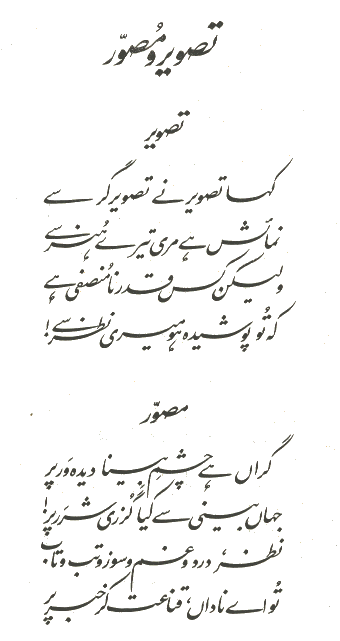 تصویر و مُصوّر
تصویر
کہا تصویر نے تصویر گر سے
نمائش ہے مری تیرے ہُنر سے
ولیکن کس قدر نا مُنصفی ہے
کہ تُو پوشیدہ ہو میری نظر سے!
مصوّر
گراں ہے چشمِ بینا دیدہ وَر پر
جہاں بینی سے کیا گُزری شرَر پر!
نظر، درد و غم و سوز و تب و تاب
تُو اے ناداں، قناعت کر خبر پر